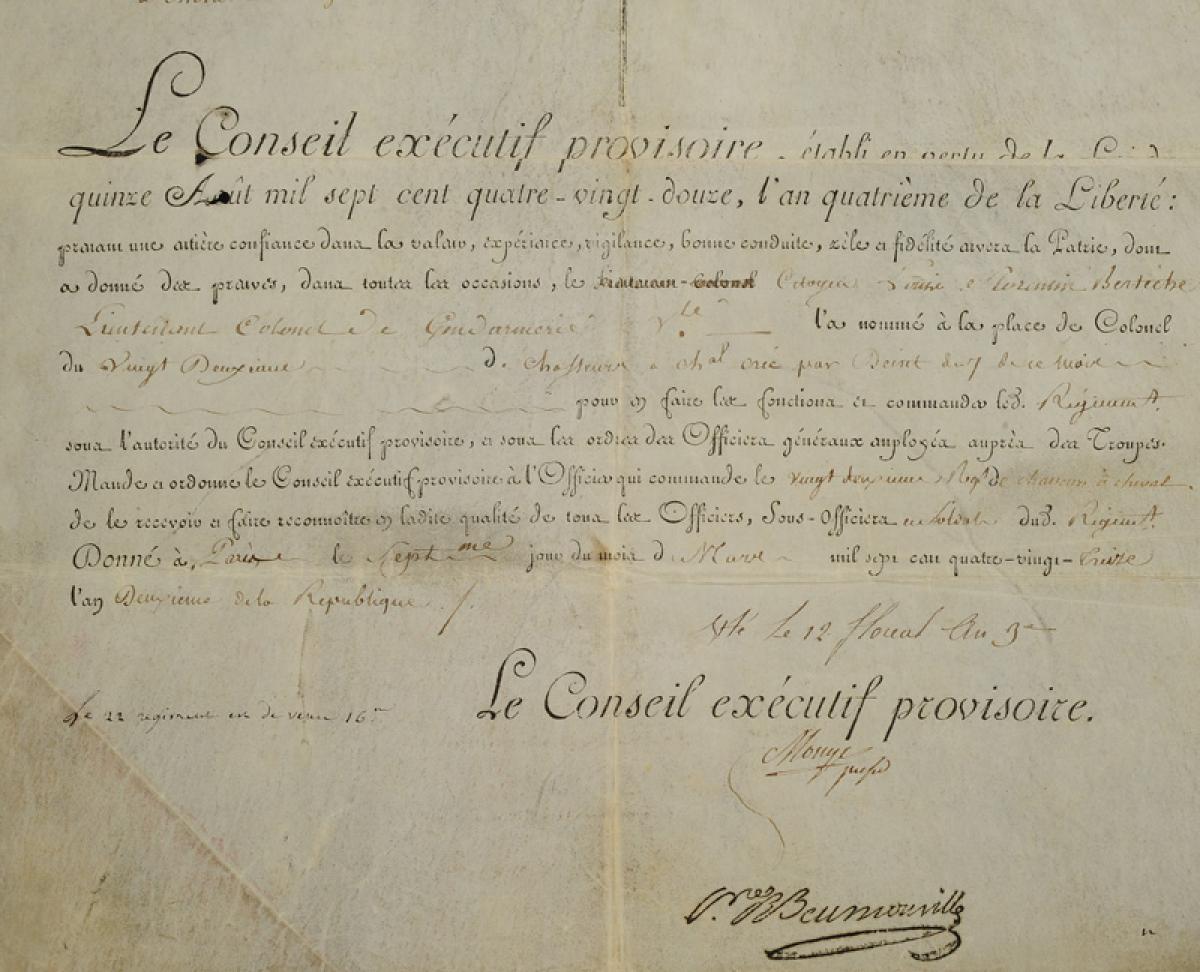 Le Conseil exécutif provisoire, établi en vertu de la Loi du
quinze Août mil sept cent quatre-vingt-douze, l'an quatrième de la Liberté:
prenant une entière confiance dans la valeur, expérience, vigilance, bonne conduite, zèle et fidélité envers la Patrie, dont
a donné des preuves, dans toutes les occasions, le Lieutenant-Colonel Citoyen Louis Florentin Berteche
Lieutenant Colonel de Gendarmerie l'a nommé à la place de Colonel
du Vingt Deuxieme d. Chasseurs a chal créé par Decret du 7 de ce mois
pour en faire les fonctions et commander led. Régiment.
sous l'autorité du Conseil exécutif provisoire, et sous les ordres des Officiers généraux employés auprès des Troupes.
Mande et ordonne le Conseil exécutif provisoire à l'Officier qui commande le vingt deuxieme Regt de chasseurs à cheval
de le recevoir et faire reconnoître en ladite qualité de tous les Officiers, Sous-Officiers et Soldats dud. Régiment.
Donné à Paris le Septme jour du mois d Mars mil sept cent quatre-vingt-treize
l'an Deuxieme de la Republique
le 12 floreal An 3e
Le 22 regiment est devenu 16
Le Conseil exécutif provisoire.
Monge
Beurnonville